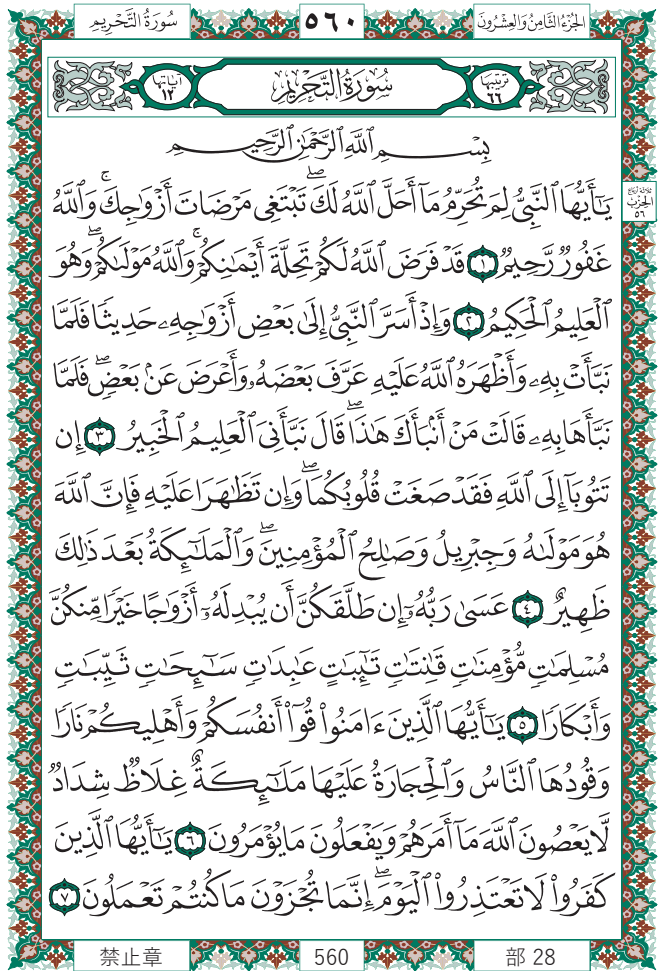 الجُزْءُ الثَّامِنُ وَالعِشْرُونَ ٥٦٠ سُورَةُ التَّحْرِيمِ
تَرْتِيبُهَا ٦٦ سُورَةُ التَّحْرِيمِ آيَاتُهَا ١٢
بِسْمِ ٱللَّهِ ٱلرَّحْمَٰنِ ٱلرَّحِيمِ
يَٰٓأَيُّهَا ٱلنَّبِيُّ لِمَ تُحَرِّمُ مَآ أَحَلَّ ٱللَّهُ لَكَۖ تَبْتَغِى مَرْضَاتَ أَزْوَٰجِكَۚ وَٱللَّهُ
ثلاثة أرباع الحزب ٥٦
غَفُورٌ رَّحِيمٌ ١ قَدْ فَرَضَ ٱللَّهُ لَكُمْ تَحِلَّةَ أَيْمَٰنِكُمْۚ وَٱللَّهُ مَوْلَىٰكُمْۖ وَهُوَ
ٱلْعَلِيمُ ٱلْحَكِيمُ ٢ وَإِذْ أَسَرَّ ٱلنَّبِيُّ إِلَىٰ بَعْضِ أَزْوَٰجِهِۦ حَدِيثًا فَلَمَّا
نَبَّأَتْ بِهِۦ وَأَظْهَرَهُ ٱللَّهُ عَلَيْهِ عَرَّفَ بَعْضَهُۥ وَأَعْرَضَ عَنۢ بَعْضٍۖ فَلَمَّا
نَبَّأَهَا بِهِۦ قَالَتْ مَنْ أَنۢبَأَكَ هَٰذَاۖ قَالَ نَبَّأَنِىَ ٱلْعَلِيمُ ٱلْخَبِيرُ ٣ إِن
تَتُوبَآ إِلَى ٱللَّهِ فَقَدْ صَغَتْ قُلُوبُكُمَاۖ وَإِن تَظَٰهَرَا عَلَيْهِ فَإِنَّ ٱللَّهَ
هُوَ مَوْلَىٰهُ وَجِبْرِيلُ وَصَٰلِحُ ٱلْمُؤْمِنِينَۖ وَٱلْمَلَٰٓئِكَةُ بَعْدَ ذَٰلِكَ
ظَهِيرٌ ٤ عَسَىٰ رَبُّهُۥٓ إِن طَلَّقَكُنَّ أَن يُبْدِلَهُۥٓ أَزْوَٰجًا خَيْرًا مِّنكُنَّ
مُسْلِمَٰتٍ مُّؤْمِنَٰتٍ قَٰنِتَٰتٍ تَٰٓئِبَٰتٍ عَٰبِدَٰتٍ سَٰٓئِحَٰتٍ ثَيِّبَٰتٍ
وَأَبْكَارًا ٥ يَٰٓأَيُّهَا ٱلَّذِينَ ءَامَنُوا۟ قُوٓا۟ أَنفُسَكُمْ وَأَهْلِيكُمْ نَارًا
وَقُودُهَا ٱلنَّاسُ وَٱلْحِجَارَةُ عَلَيْهَا مَلَٰٓئِكَةٌ غِلَاظٌ شِدَادٌ
لَّا يَعْصُونَ ٱللَّهَ مَآ أَمَرَهُمْ وَيَفْعَلُونَ مَا يُؤْمَرُونَ ٦ يَٰٓأَيُّهَا ٱلَّذِينَ
كَفَرُوا۟ لَا تَعْتَذِرُوا۟ ٱلْيَوْمَۖ إِنَّمَا تُجْزَوْنَ مَا كُنتُمْ تَعْمَلُونَ ٧
禁止章 560 部 28